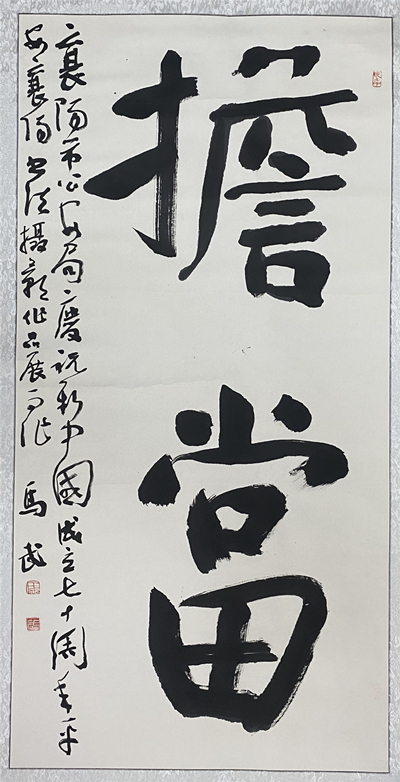 擔當
襄陽市公安局慶祝新中國成立七十周年平
安襄陽书法攝影作品展而作 馬武